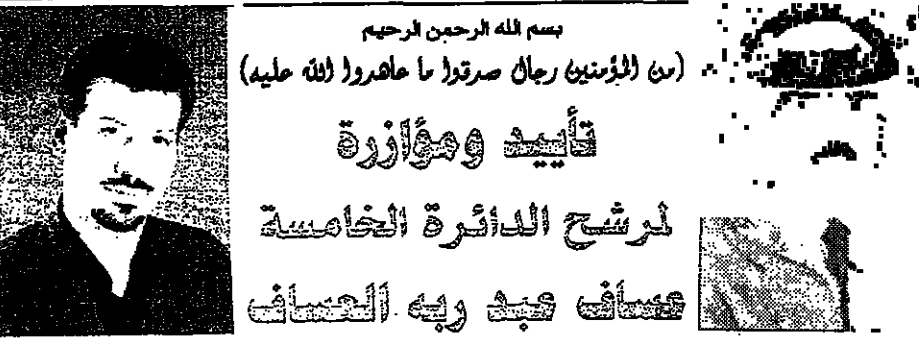 بسم الله الرحمن الرحيم
(من المؤمنين رجال صدقوا ما عاهدوا الله عليه)
تأييد ومؤازرة
لمرشح الدائرة الخامسة
عساف عبد ربه العساف